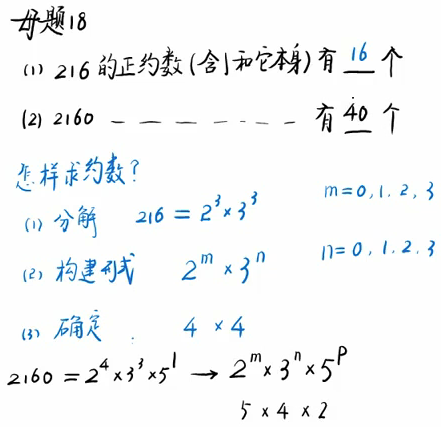 母题18
(1) 216的正约数(含1和它本身)有 16 个
(2) 2160 — — — — — — — 有 40 个
怎样求约数?
(1) 分解 216 = 2³×3³ m=0,1,2,3
(2) 构建形式 2ᵐ × 3ⁿ n=0,1,2,3
(3) 确定. 4 × 4
2160 = 2⁴×3³×5¹ → 2ᵐ×3ⁿ×5ᴾ
5 × 4 × 2